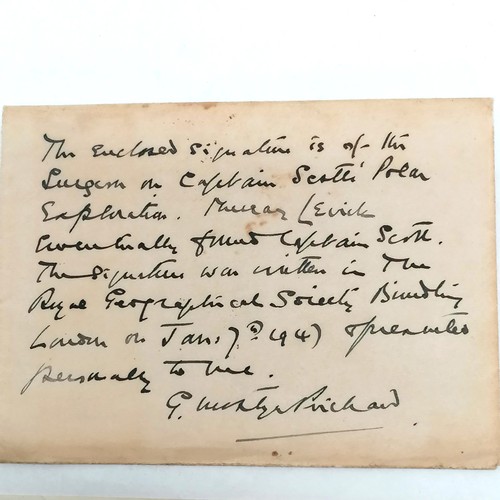 The enclosed signature is of the
Surgeon on Captain Scott's Polar
Exploration. Murray Levick
Eventually found Captain Scott.
The signature was written in The
Royal Geographical Society Building
London on Jan: 7th 1947 & presented
personally to me.
G. Prichard